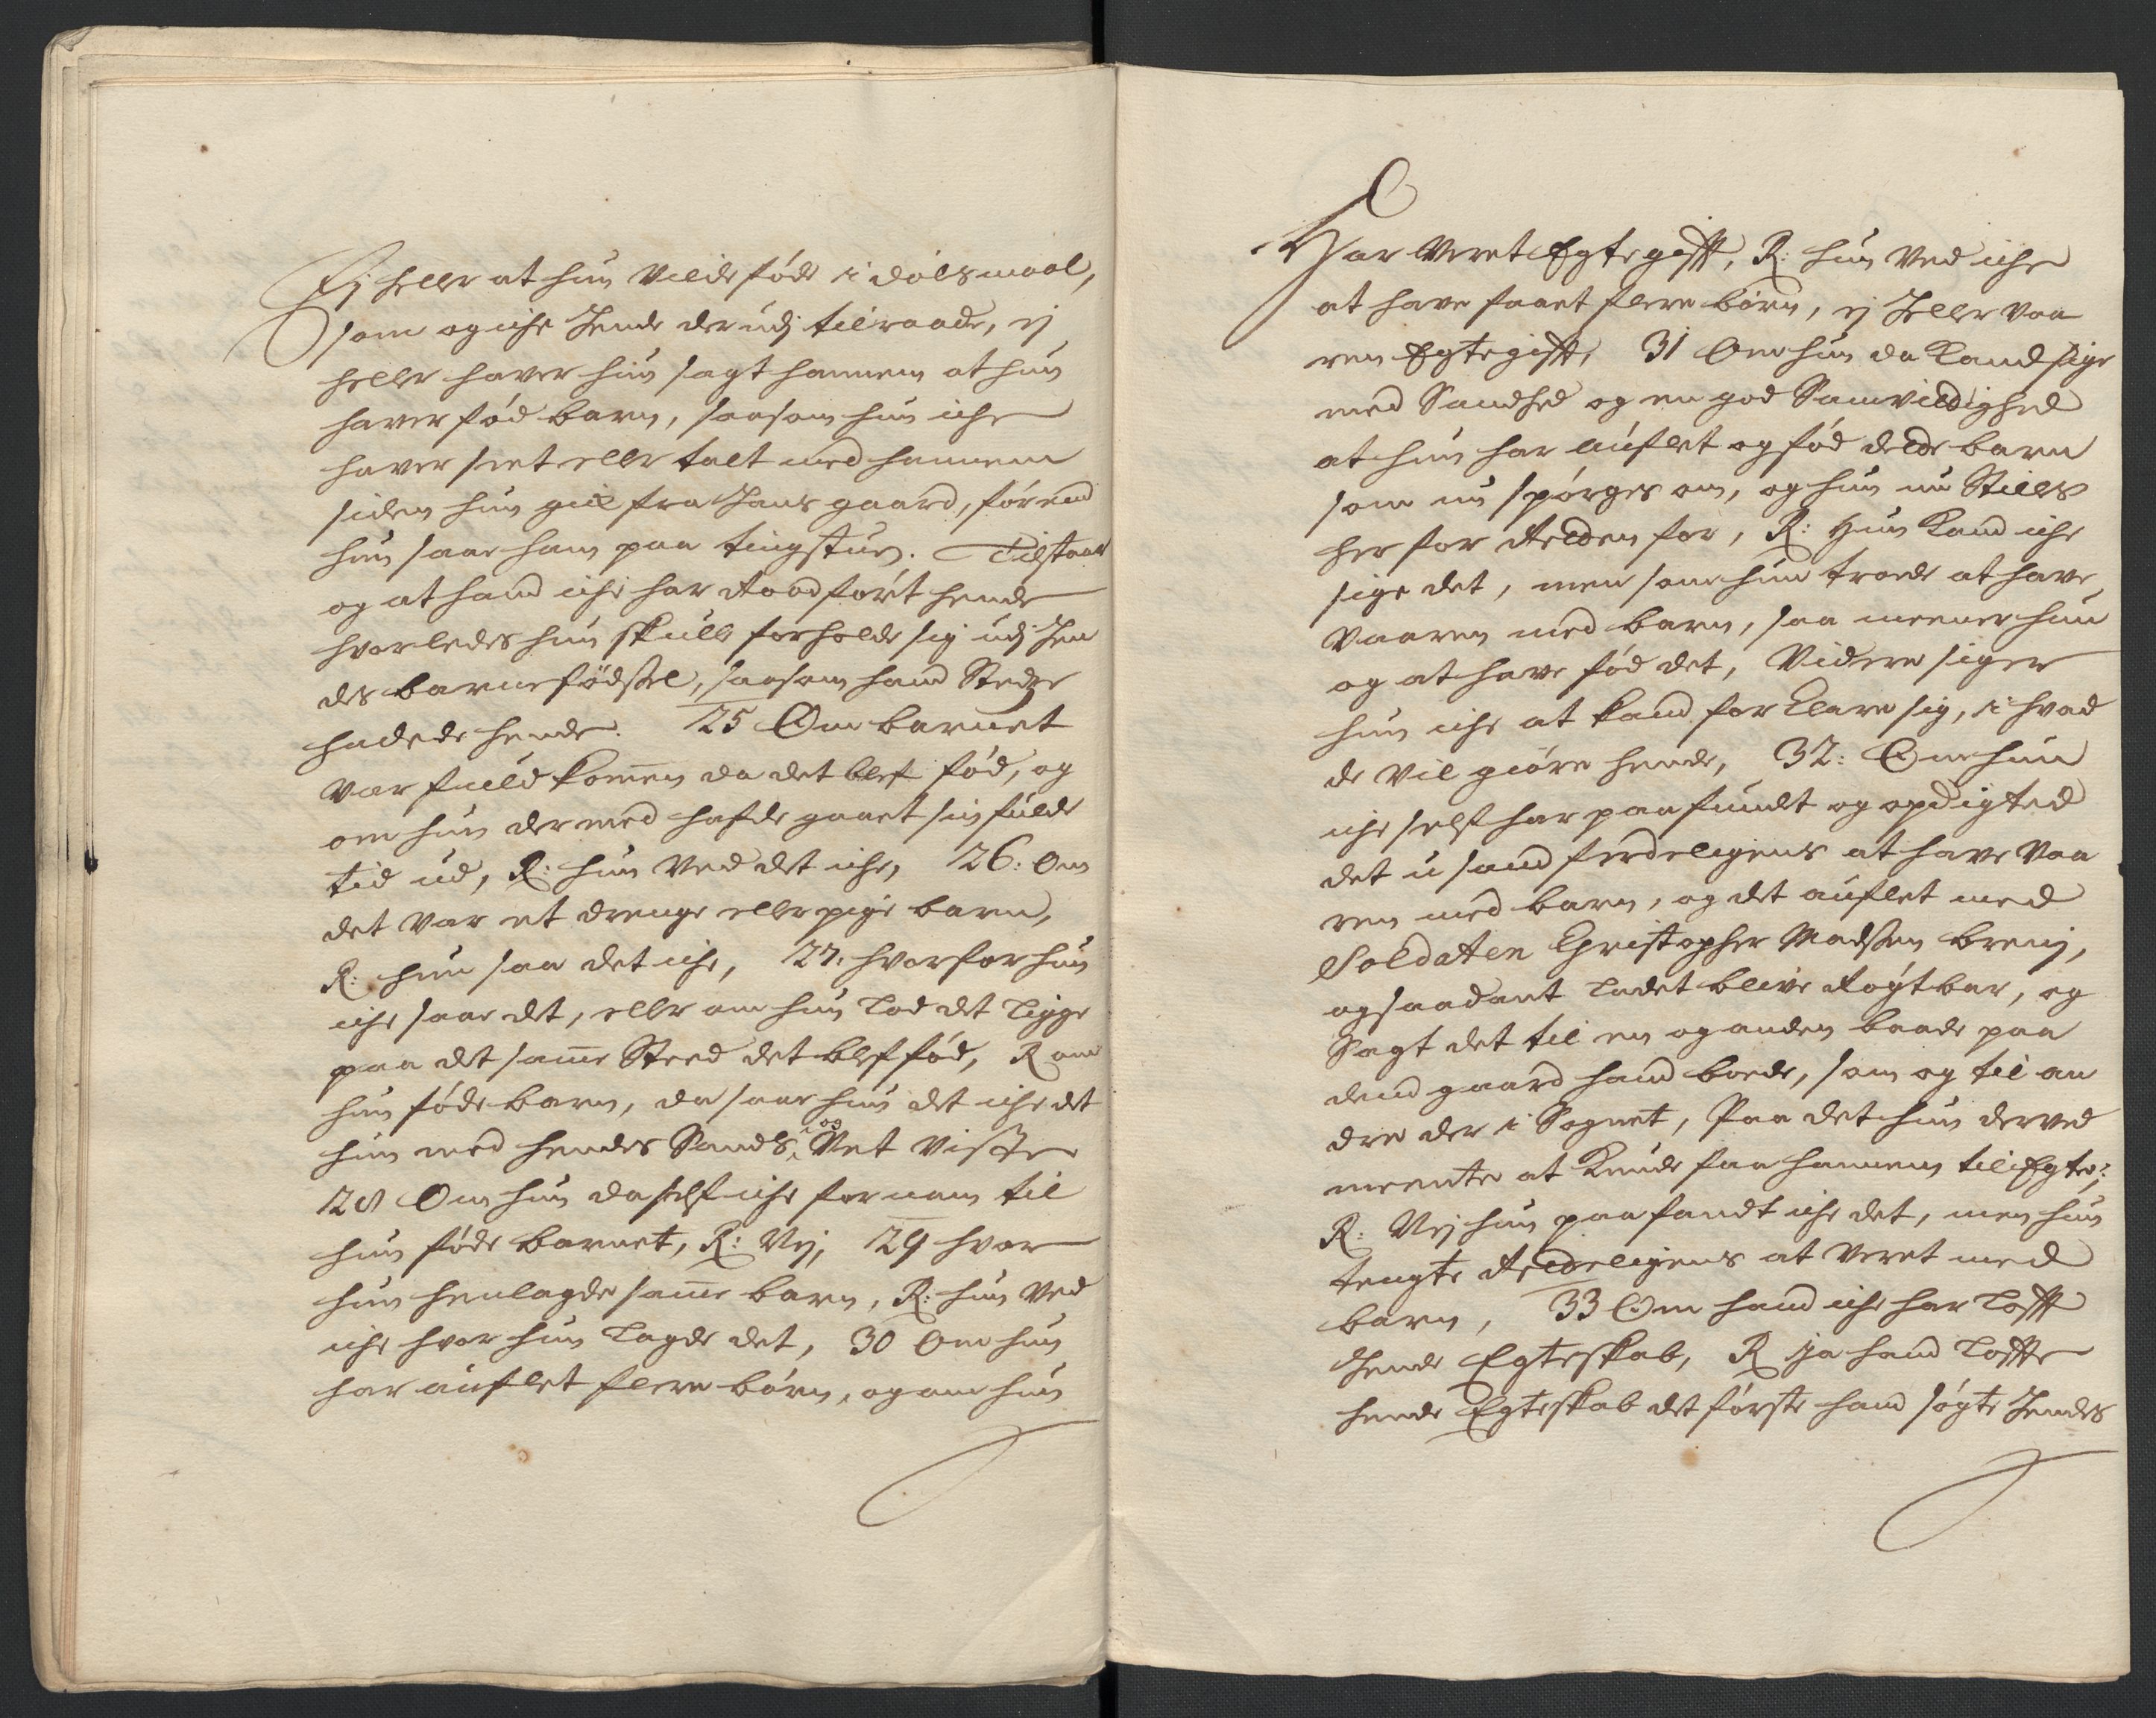 Ej heller at hun vilde føde i dølsmaal,
som og iche hende derudj tilraade, ej
heller haver hun sagt hannem at hun
haver fød barn, saasom hun iche
haver seet eller talt med hannem
siden hun gick fra hans gaard, førend
hun saae ham paa tingstuen. Tilstaar
og at hand iche har Raadført hende
hvorledes hun skulle forholde sig udj hen
des barnefødssel, saasom hand Stedze
hadede hende. 25 Om barnet
var fuldkom̅en da det blef fød, og
om hun dermed hafde gaaet sin fulde
tid ud, R: hun Ved det iche, 26: Om
det var et drenge eller pige barn,
R: hun saa det iche, 27. hvorfor hun
iche saae det, eller om hun lod det ligge
paa det sam̅e Sted det blef fød, R om
hun føde barn, da saae hun det iche det
hun med hendes Sands, og Vet viste
28 Om hun da self iche fornam til
hun føde barnet, R: Nej, 29 hvor
hun henlagde sam̅e barn, R: hun Ved
iche hvor hun lagde det, 30 Om hun
har auflet flere børn, og om hun
Har veret Egtegifft, R: hun Ved iche
at have faaet flere børn, ej heller vaa
ren Egtegifft, 31 Om hun da kand sige
med Sandhed og en god Samvittighed
at hun har auflet og fød dette barn
som nu spørges om, og hun nu Stilles
her for Retten for, R: Hun kand iche
sige det, men som hun troede at have
vaaren med barn, saa meener hun
og at have fød det, Videre siger
hun iche at kand forklare sig, i hvad
de vil giøre hende, 32: Om hun
iche self har paafundt og opdigted
det usandferdeligens at have vaa
ren med barn, og det auflet med
Soldaten Christopher Madssen brenj,
og saadant ladet blive Røgtbar, og
Sagt det til en og anden baade paa
dend gaard hand boede, som og til an
dre der i Sognet, Paa det hun derved
meente at kunde faa hannem til Egte;
R: Nej hun paafandt iche det, men hun
tengte Retteligens at veret med
barn, 33 Om hand iche har lofft
hende Egteskab, R ja hand loffte
hende Egteskab det første hand søgte hendes